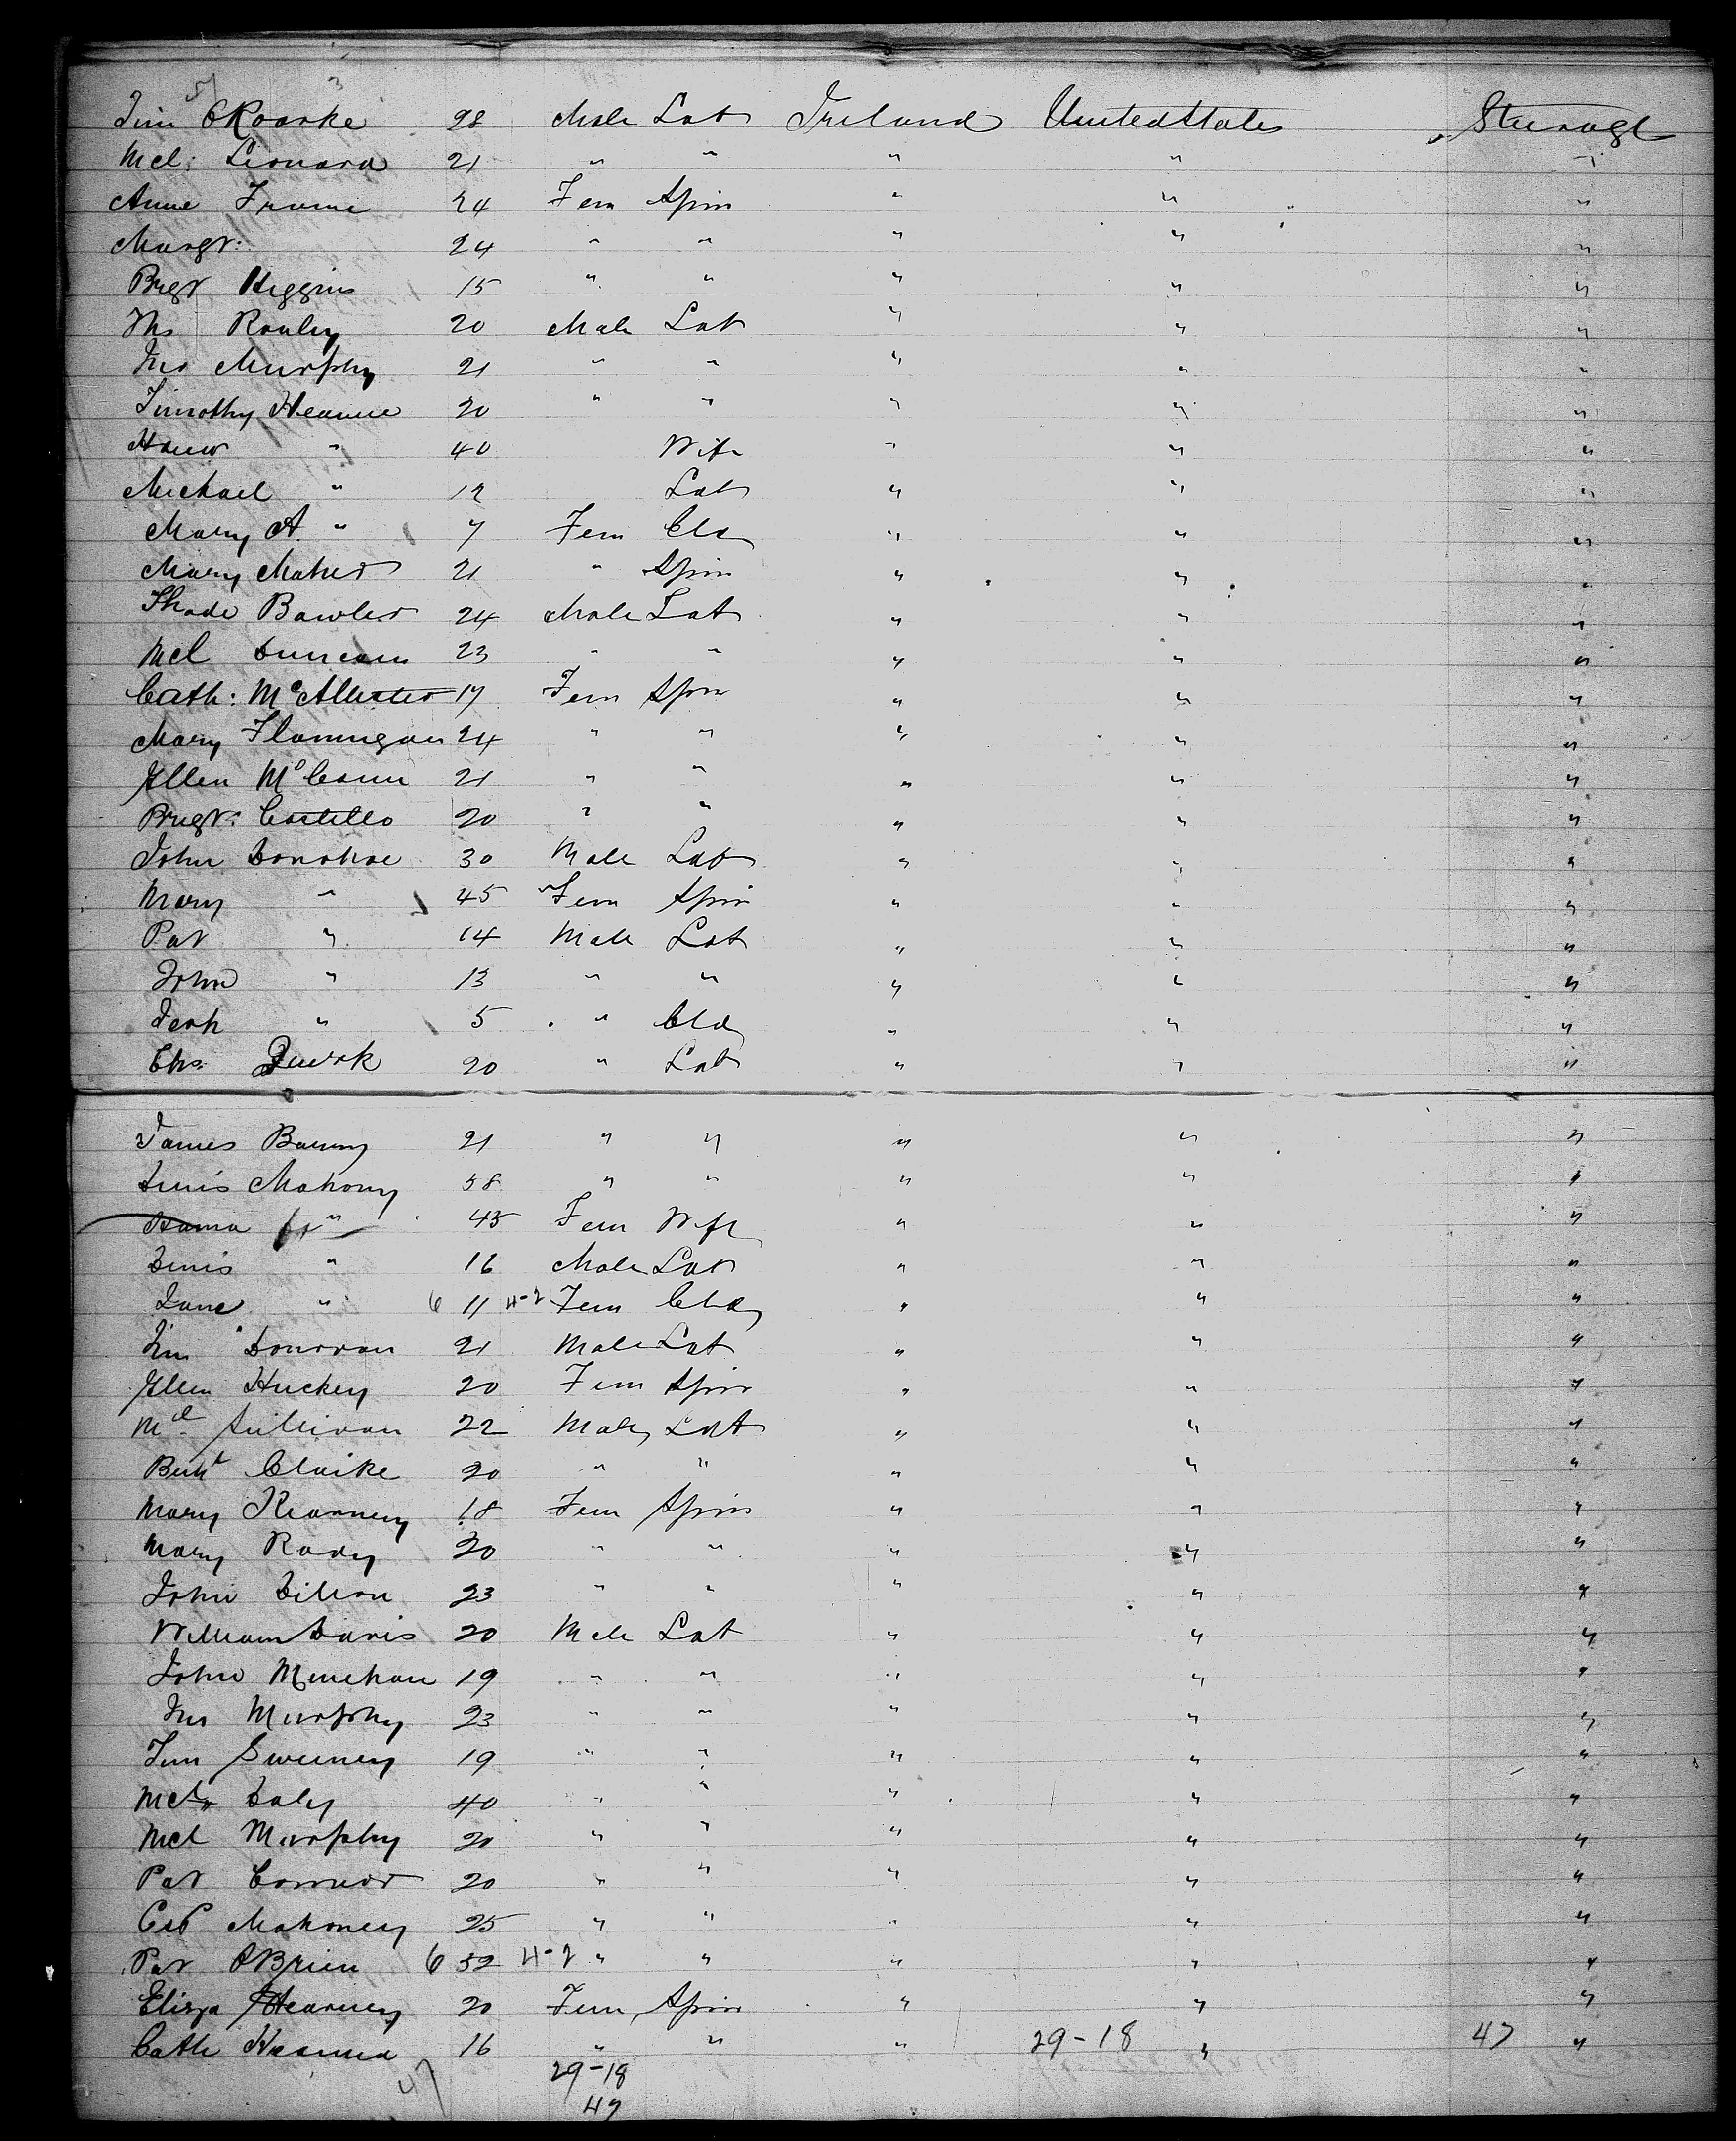 Tim O'Roarke 28 Male Lab Ireland United States Steerage
Mcl: Leonard 21 " " " " "
Anne 24 Fem Spin " " "
Margt: 24 " " " " "
Brigt Higgins 15 " " " " "
Ths Rouley 20 Male Lab " " "
Jno Murphy 21 " " " " "
Timothy 20 " " " " "
" 40 Wife " " "
Michael " 12 Lab " " "
Mary A. " 7 Fem Cld " " "
Mary Maher 21 " Spin " " "
Thade Bowler 24 Male Lab " " "
Mcl Duncan 23 " " " " "
Cath: McAllister 17 Fem Spin " " "
Mary Flannigan 24 " " " " "
Ellen McCann 21 " " " " "
Brigt: Costello 20 " " " " "
John Donohoe 30 Male Lab " " "
Mary " 45 Fem Spin " " "
Pat " 14 Male Lab " " "
John " 13 " " " " "
Jerh " 5 " Cld " " "
Chs Quirk 20 " Lab " " "
James Barry 21 " " " " "
Denis Mahony 58 " " " " "
" 45 Fem Wife " " "
Denis " 16 Male Lab " " "
Jane " 6 11 4-2 Fem Chld " " "
Tim Donovan 21 Male Lab " " "
Ellen Huckey 20 Fem Spin " " "
Mcl Sullivan 22 Male Lab " " "
Clarke 20 " " " " "
Mary Kearney 18 Fem Spin " " "
Mary Rody 20 " " " " "
John Dillon 23 " " " " "
William Davis 20 Male Lab " " "
John Minehan 19 " " " " "
Jno Murphy 23 " " " " "
Tim Sweeney 19 " " " " "
Mcl Daly 40 " " " " "
Mcl Murphy 20 " " " " "
Pat Connor 20 " " " " "
Mahoney 25 " " " " "
Pat OBrien 6 52 4-2 " " " " "
Eliza Hearney 20 Fem Spin " " "
Cath 16 " " " 29-18 " 47 "
47 29-18
47